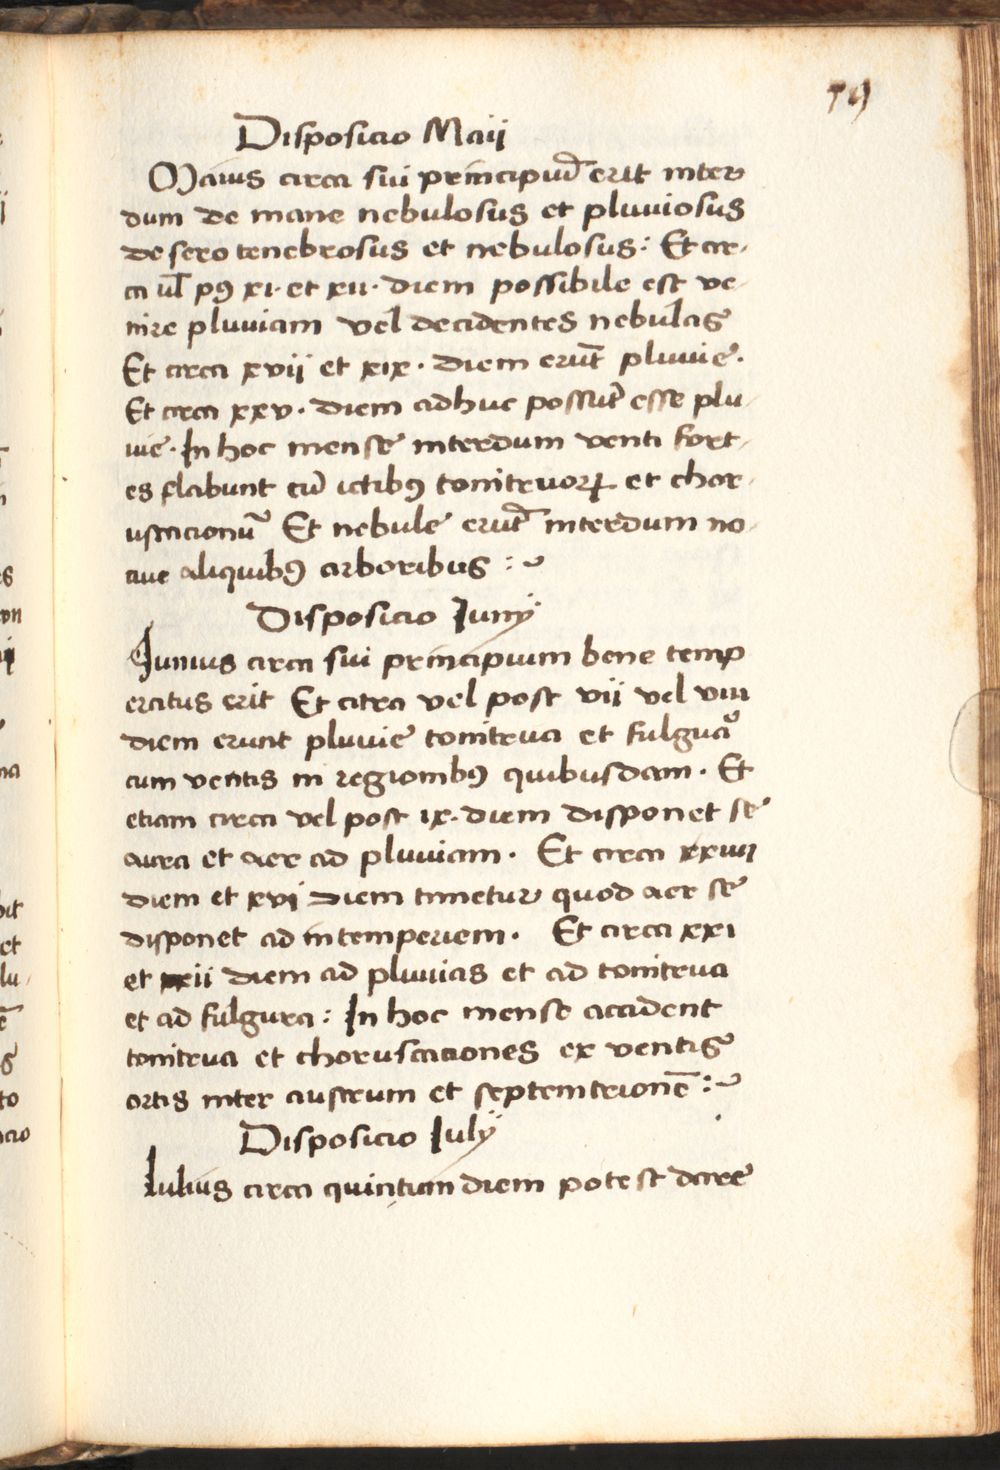 79
Disposicio Maii
Maius circa sui principiu̅ erit inter
dum de mane nebulosus et pluviosus
de sero tenebrosus et nebulosus: Et cir-
ca ul̅ pꝯ xi· et xii· diem possibile est ve-
nire pluviam vel decidentes nebulas
Et circa xvii et xix· diem eru̅t pluvie·
Et circa xxv· diem adhuc possu̅t esse plu-
vie· In hoc mense interdum venti fort-
es flabunt cu̅ ictibꝯ tonitruoꝝ et chor-
uscacionu̅ Et nebule eru̅t interdum no-
cive aliquibꝯ arboribus :~
Disposicio Iunÿ
Iunius circa sui principium bene temp
eratus erit Et citra vel post vii vel viii
diem erunt pluvie tonitrua et fulgua̅
cum ventis in regionibꝯ quibusdam· Et
etiam circa vel post ix· diem disponet se
aura et aer ad pluviam· Et circa xxiiii
diem et xvi diem timetur quod aer se
disponet ad intemperiem· Et circa xxi
et xxii diem ad pluvias et ad tonitrua
et ad fulgura: In hoc mense accident
tonitrua et choruscaciones ex ventis
ortis inter austrum et septemtrione̅ :~
Disposicio Iulÿ
Iulius circa quintum diem potest dare